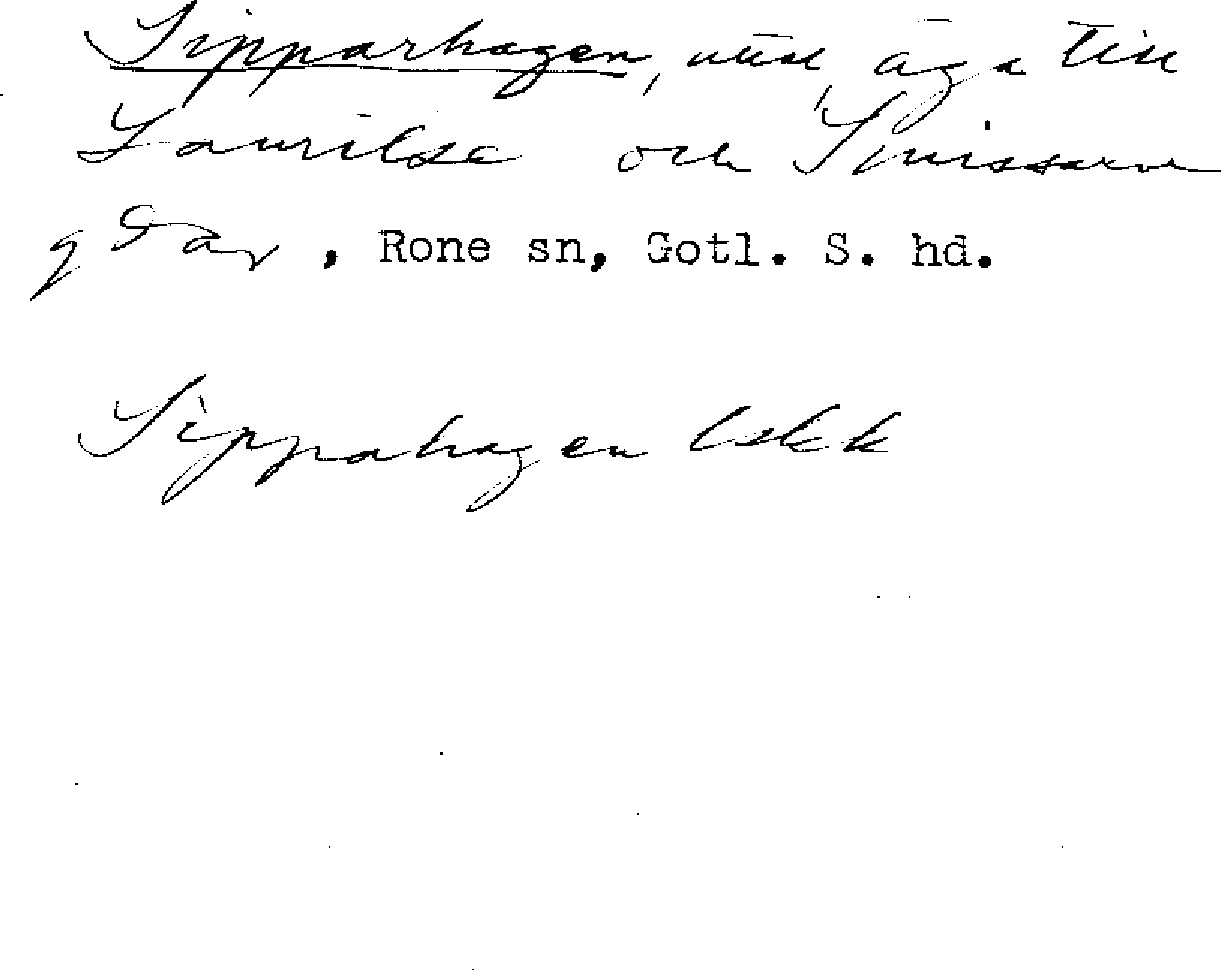 Sipparhagen, utsl, äga till
Laurilse och Smissarve
gdar, Rone sn, Gotl. S. hd.
Sippahagen Lskk